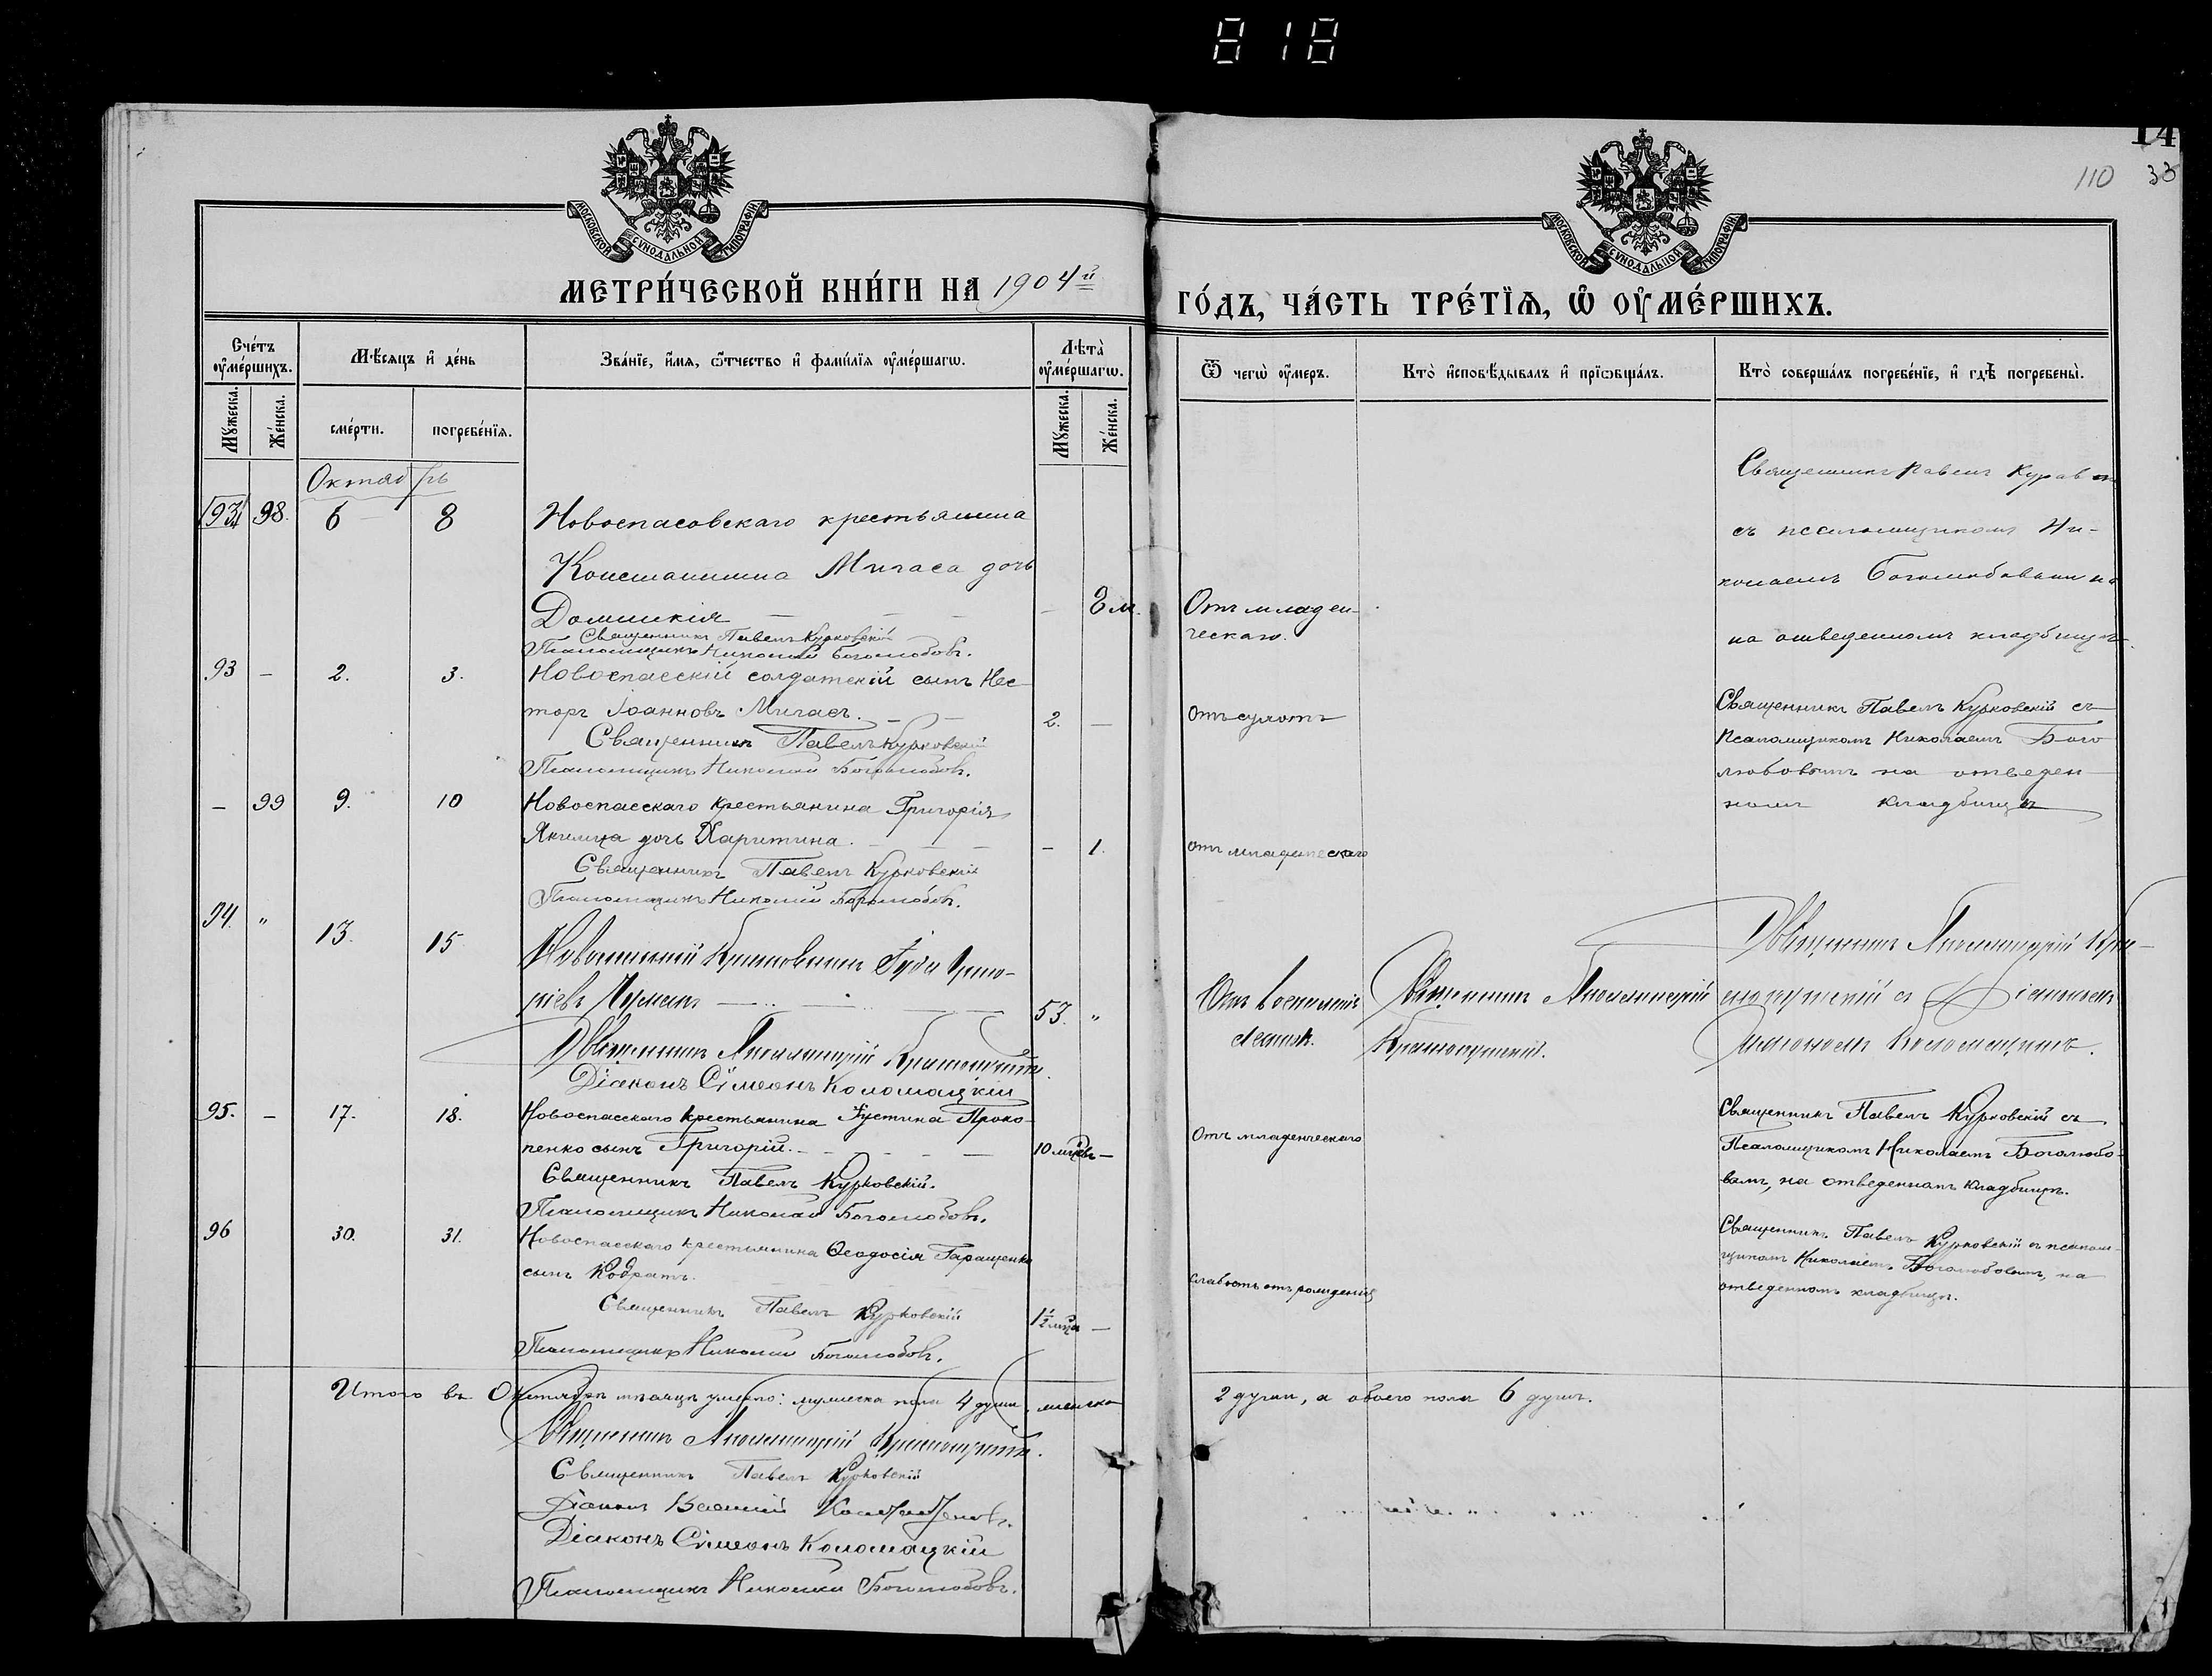 818
14
110 33
МОСКОВСКОЙ СУНОДАЛЬНОЙ ТИПОГРАФІИ
МОСКОВСКОЙ СУНОДАЛЬНОЙ ТИПОГРАФІИ
МЕТРИ́ЧЕСКОЙ КНИ́ГИ НА 1904й
ГО́ДЪ, ЧА́СТЬ ТРЕ́ТЇѦ, Ѡ ОУ҆МЕ́РШИХЪ.
Сче́тъ оу҆ме́ршихъ.
Мѣ́сѧцъ и҆ де́нь
Зва́нїе, и҆́мѧ, ѻ҆́тчество и҆ фами́лїѧ оу҆ме́ршагѡ.
Лѣта̀ оу҆ме́ршагѡ.
Ѿ чегѡ̀ оу҆́меръ.
Кто̀ и҆сповѣ́дывалъ и҆ прїѻбща́лъ.
Кто̀ соверша́лъ погребе́нїе, и҆ гдѣ̀ погребены̀.
Му́жеска.
Же́нска.
сме́рти.
погребе́нїѧ.
Му́жеска.
Же́нска.
Октябрь
98. 6 8 Новоспасовскаго крестьянина
Константина Мигаса дочь
Домникія — — — 8 м.
Священникъ Павелъ Курковскій
Псаломщикъ Николай Боголюбовъ.
Отъ младен-
ческаго.
Священникъ Павелъ
съ псаломщикомъ Ни-
колаемъ Боголюбовым на
на отведенномъ кладбищѣ.
93 — 2. 3. Новоспасскій солдатскій сынъ Нес-
торъ Іоанновъ Мигасъ. — — 2. —
Священникъ Павелъ Курковскій
Псаломщикъ Николай Боголюбовъ.
Отъ
Священникъ Павелъ Курковскій съ
Псаломщикомъ Николаемъ Бого
любовымъ на отведен-
номъ кладбищѣ
— 99 9. 10 Новоспасскаго крестьянина Григорія
дочь Харитина. — — — — 1.
Священникъ Павелъ Курковскій
Псаломщикъ Николай Боголюбовъ.
отъ младенческаго
94. " 13. 15 Григо-
ріевъ 53. "
Священникъ
Діаконъ Сѵмеонъ Коломацкій
Отъ воспаленія
легкихъ.
Священникъ
Священникъ
съ Діакономъ
95. — 17. 18. Новоспасскаго крестьянина Іустина Проко-
пенко сынъ Григорій. — — — — 10 мцвъ —
Священникъ Павелъ Курковскій.
Псаломщикъ Николай Боголюбовъ.
Отъ младенческаго
Священникъ Павелъ Курковскій съ
Псаломщикомъ Николаемъ Боголюбо-
вымъ, на отведенномъ кладбищѣ.
96 30. 31. Новоспасскаго крестьянина Ѳеодосія Гаращенко
сынъ Кодратъ. 1½ мца —
Священникъ Павелъ Курковскій
Псаломщикъ Николай Боголюбовъ.
слабость отъ рожденія
Священникъ Павелъ Курковскій съ псалом-
щикомъ Николаемъ Боголюбовымъ, на
отведенномъ кладбищѣ.
Итого въ Октябрѣ мѣсяцѣ умерло: мужеска пола 4 души, женска
2 души, а обоего пола 6 душъ.
Священникъ
Священникъ Павелъ Курковскій
Діаконъ Василій
Діаконъ Сѵмеонъ Коломацкій
Псаломщикъ Николай Боголюбовъ.